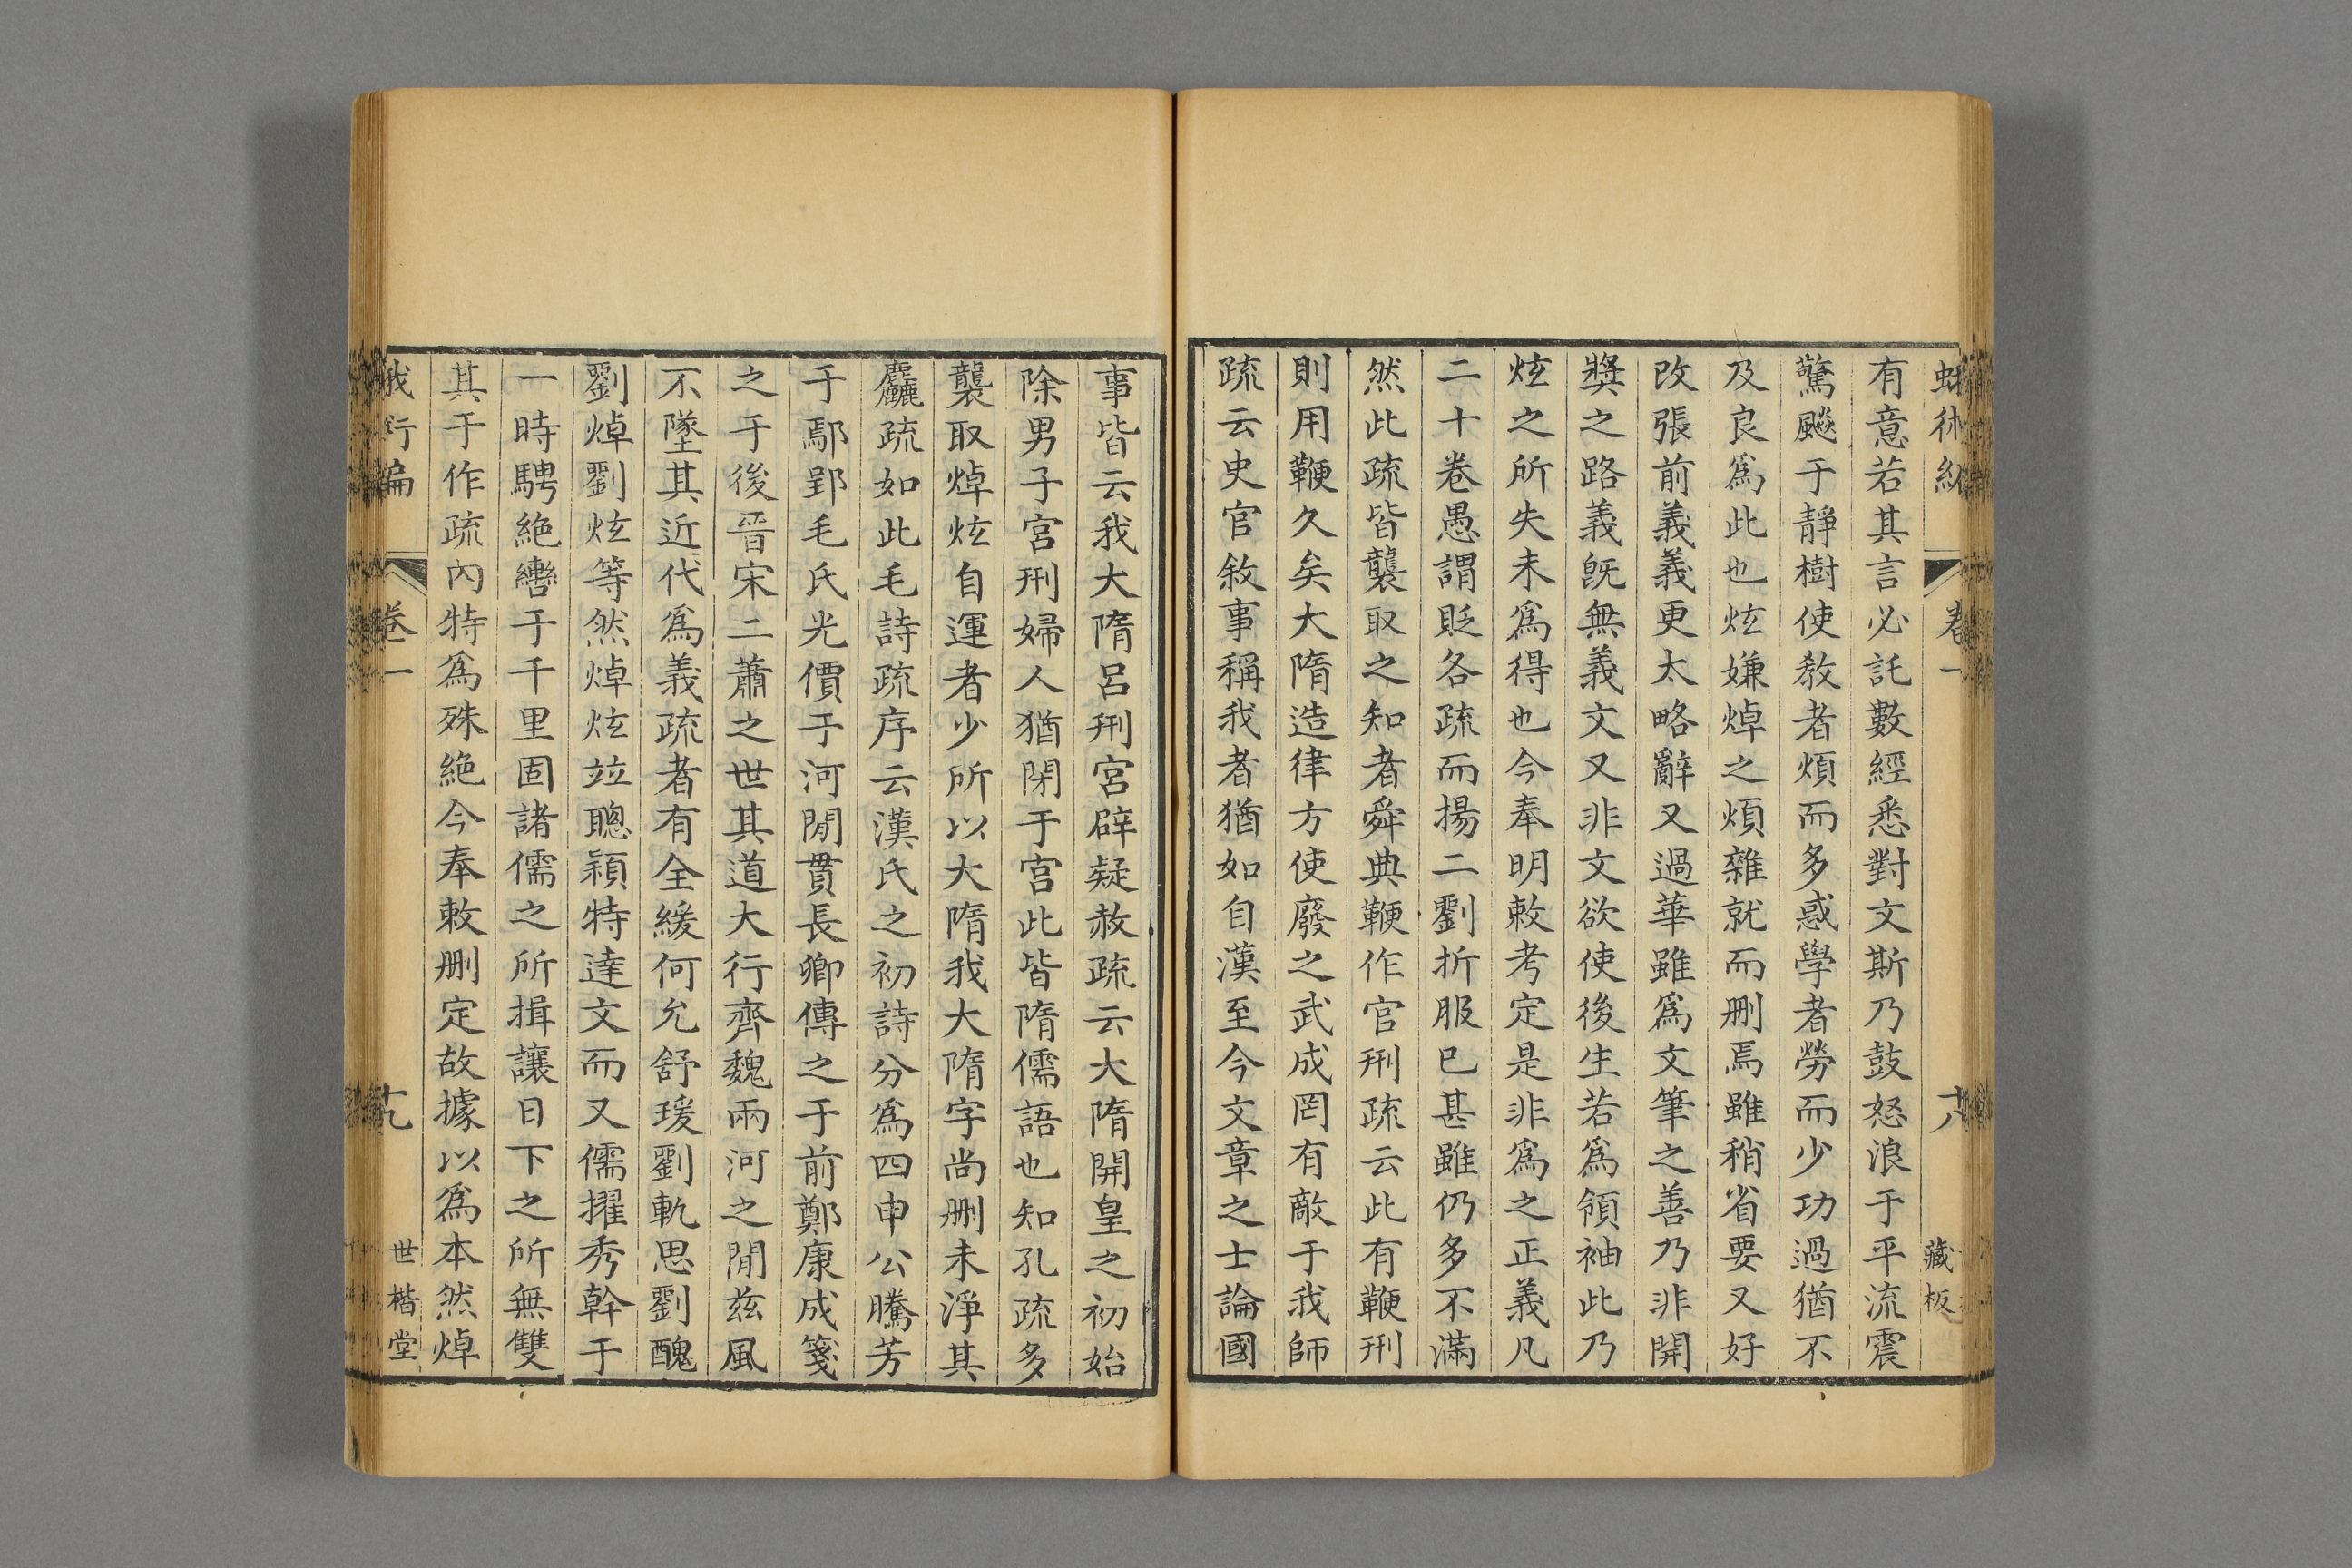 卷一
十八
藏板
有意若其言必託數經悉對文斯乃鼓怒浪于平流震
驚飈于靜樹使教者煩而多惑學者勞而少功過猶不
及良爲此也炫嫌焯之煩雜就而刪焉雖稍省要又好
改張前義義更太略辭又過華雖爲文筆之善乃非開
獎之路義旣無義文又非文欲使後生若爲領袖此乃
炫之所失未爲得也今奉明敕考定是非爲之正義凡
二十卷愚謂貶各疏而揚二劉折服已甚雖仍多不滿
然此疏皆襲取之知者舜典鞭作官𠛬疏云此有鞭𠛬
則用鞭久矣大隋造律方使廢之武成罔有敵于我師
疏云史官敘事稱我者猶如自漢至今文章之士論國
事皆云我大隋呂𠛬宮辟疑赦疏云大隋開皇之初始
除男子宮𠛬婦人猶閉于宮此皆隋儒語也知孔疏多
襲取焯炫自運者少所以大隋我大隋字尚刪未淨其
麤疏如此毛詩疏序云漢氏之初詩分爲四申公騰芳
于鄢郢毛氏光價于河閒貫長卿傳之于前鄭康成箋
之于後晉宋二蕭之世其道大行齊魏兩河之閒茲風
不墜其近代爲義疏者有全緩何允舒瑗劉軌思劉醜
劉焯劉炫等然焯炫竝聰穎特達文而又儒擢秀幹于
一時騁絶轡于千里固諸儒之所揖讓日下之所無雙
其于作疏內特爲殊絶今奉敕刪定故據以爲本然焯
蛾術編
卷一
十九
世楷堂